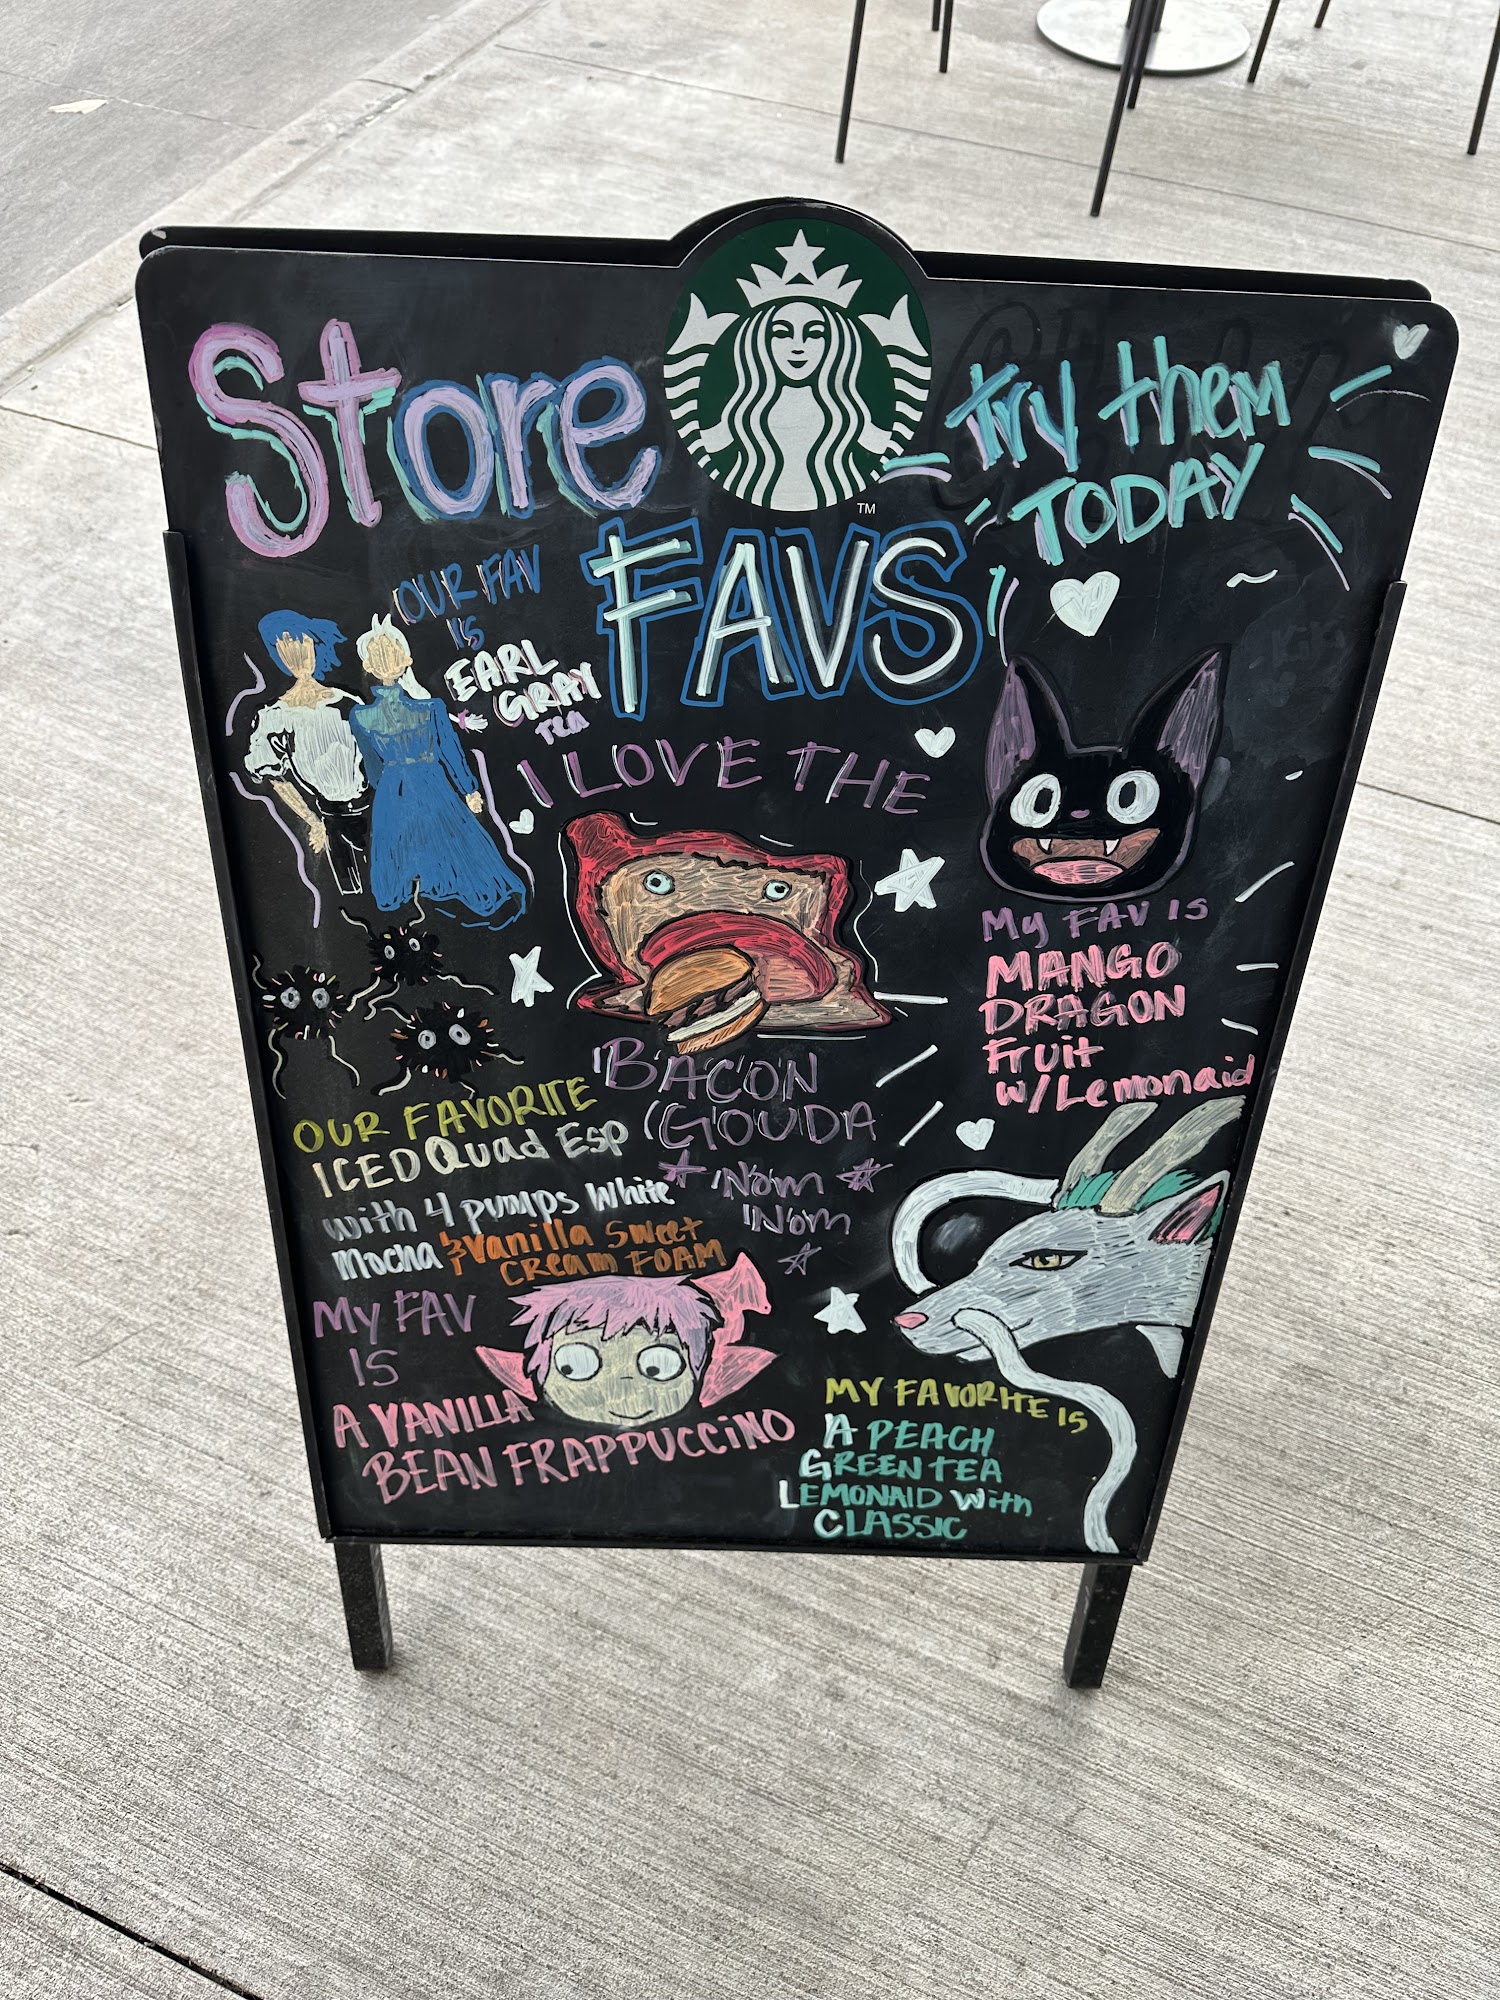 Store
FAVS
Try them
TODAY
TM
OUR FAV
IS
EARL
GRAY
Tea
I LOVE THE
BACON
GOUDA
NOM
NOM
MY FAV IS
MANGO
DRAGON
Fruit
w/ Lemonaid
OUR FAVORITE
ICED Quad Esp
with 4 pumps White
Mocha & Vanilla Sweet
CREAM FOAM
MY FAV
IS
A VANILLA
BEAN FRAPPUCCINO
MY FAVORITE IS
A PEACH
GREEN TEA
LEMONAID With
CLASSIC